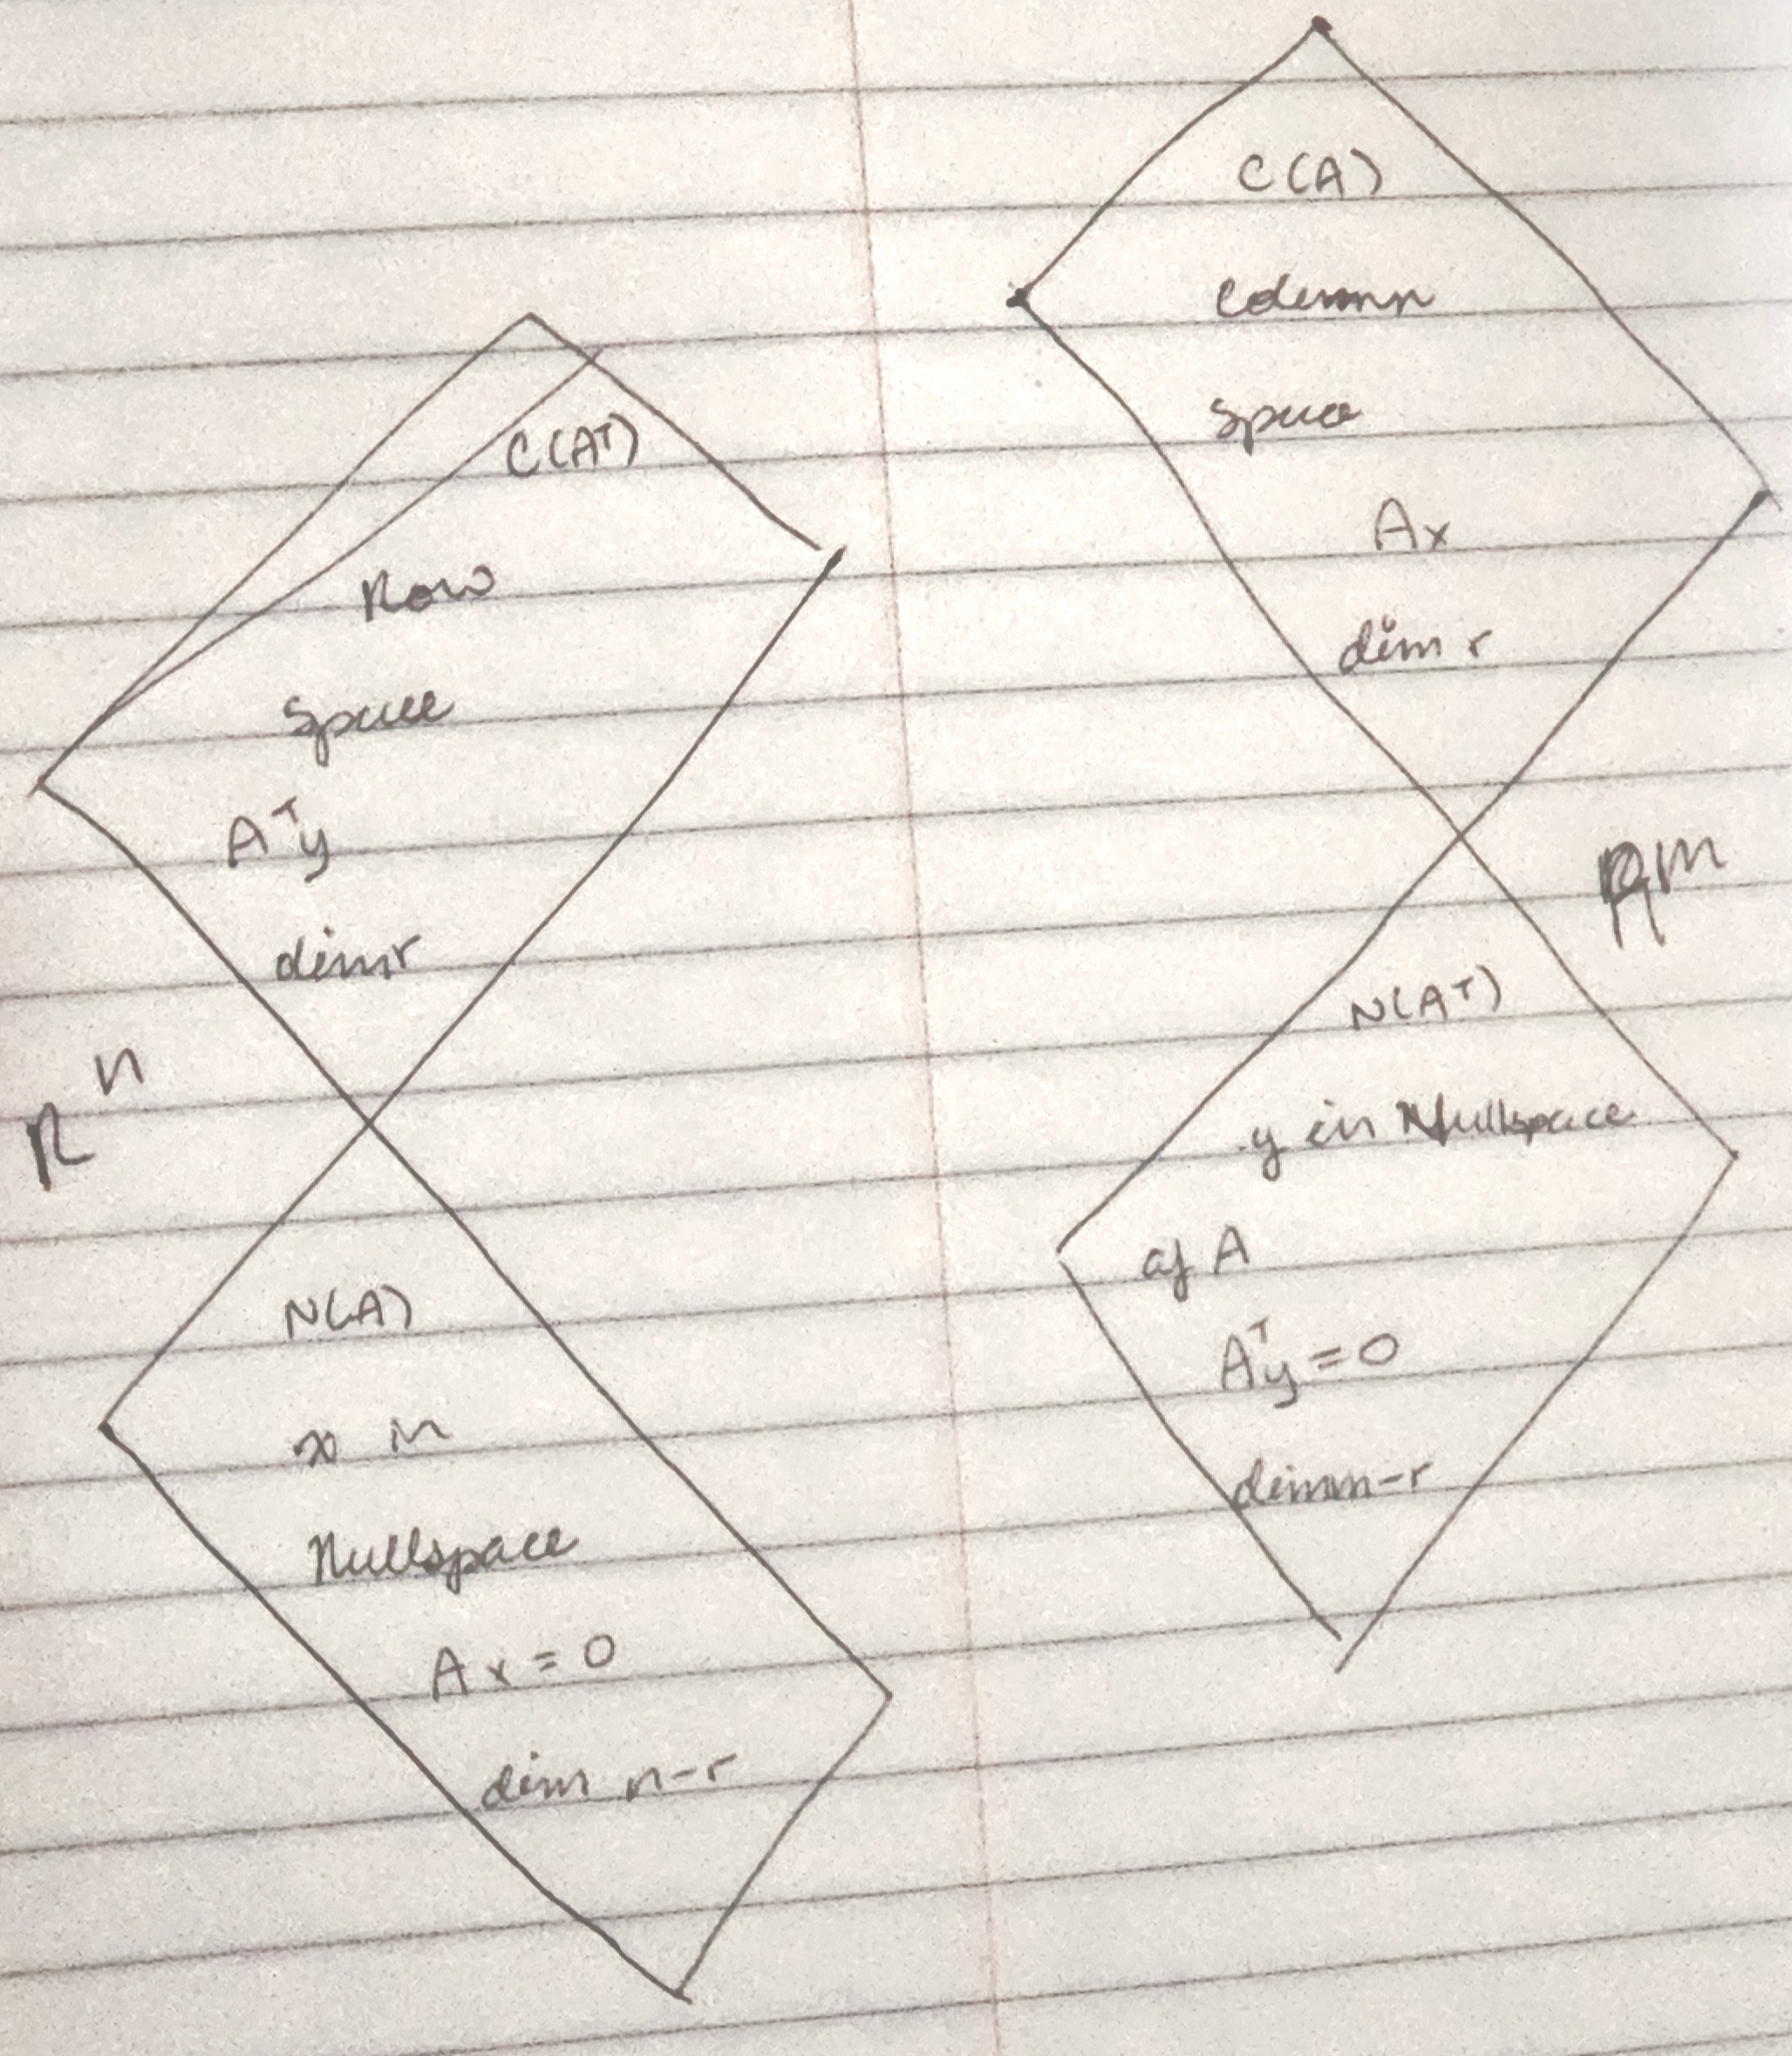 C(Aᵀ)
Row
Space
Aᵀy
dim r
Rⁿ
N(A)
x in
Nullspace
Ax = 0
dim n-r
C(A)
Column
Space
Ax
dim r
Rᵐ
N(Aᵀ)
y in Nullspace
of A
Aᵀy = 0
dim m-r